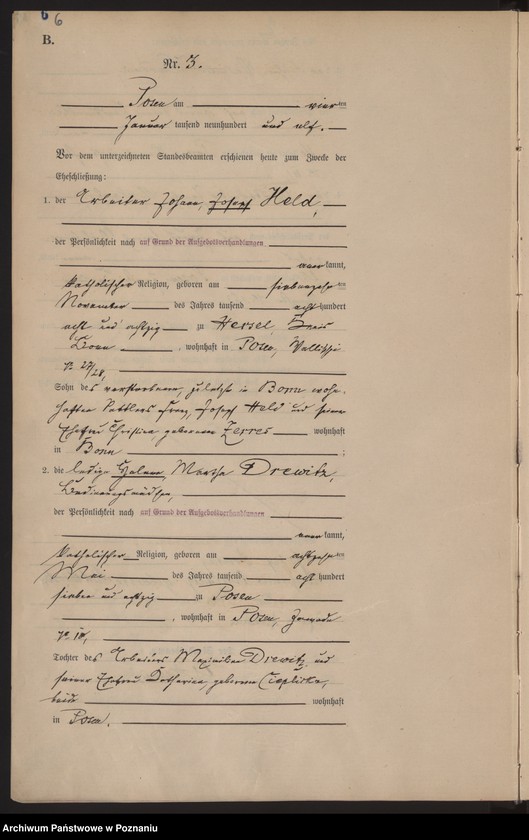 6 6
B.
Nr. 3.
Posen am vierten
Januar tausend neunhundert und elf.
Vor dem unterzeichneten Standesbeamten erschienen heute zum Zwecke der
Eheschließung:
1. der Arbeiter Johann, Josef Held,
der Persönlichkeit nach auf Grund der Aufgebotsverhandlungen
anerkannt,
katholischer Religion, geboren am siebenzehnten
November des Jahres tausend achthundert
acht und achtzig zu Hersel, Kreis
Bonn, wohnhaft in Posen, Wallischei
No 27/28,
Sohn des verstorbenen, zuletzt in Bonn wohn-
haften Sattlers Franz, Josef Held und seiner
Ehefrau Christina geborenen Zerres wohnhaft
in Bonn;
2. die ledige Helene, Martha Drewitz,
der Persönlichkeit nach auf Grund der Aufgebotsverhandlungen
anerkannt,
katholischer Religion, geboren am achtzehnten
Mai des Jahres tausend achthundert
sieben und achtzig zu Posen
, wohnhaft in Posen, Zawade
No
Tochter des Arbeiters Maximilian Drewitz und
seiner Ehefrau Katharina, geborene
beide wohnhaft
in Posen.
Archiwum Państwowe w Poznaniu